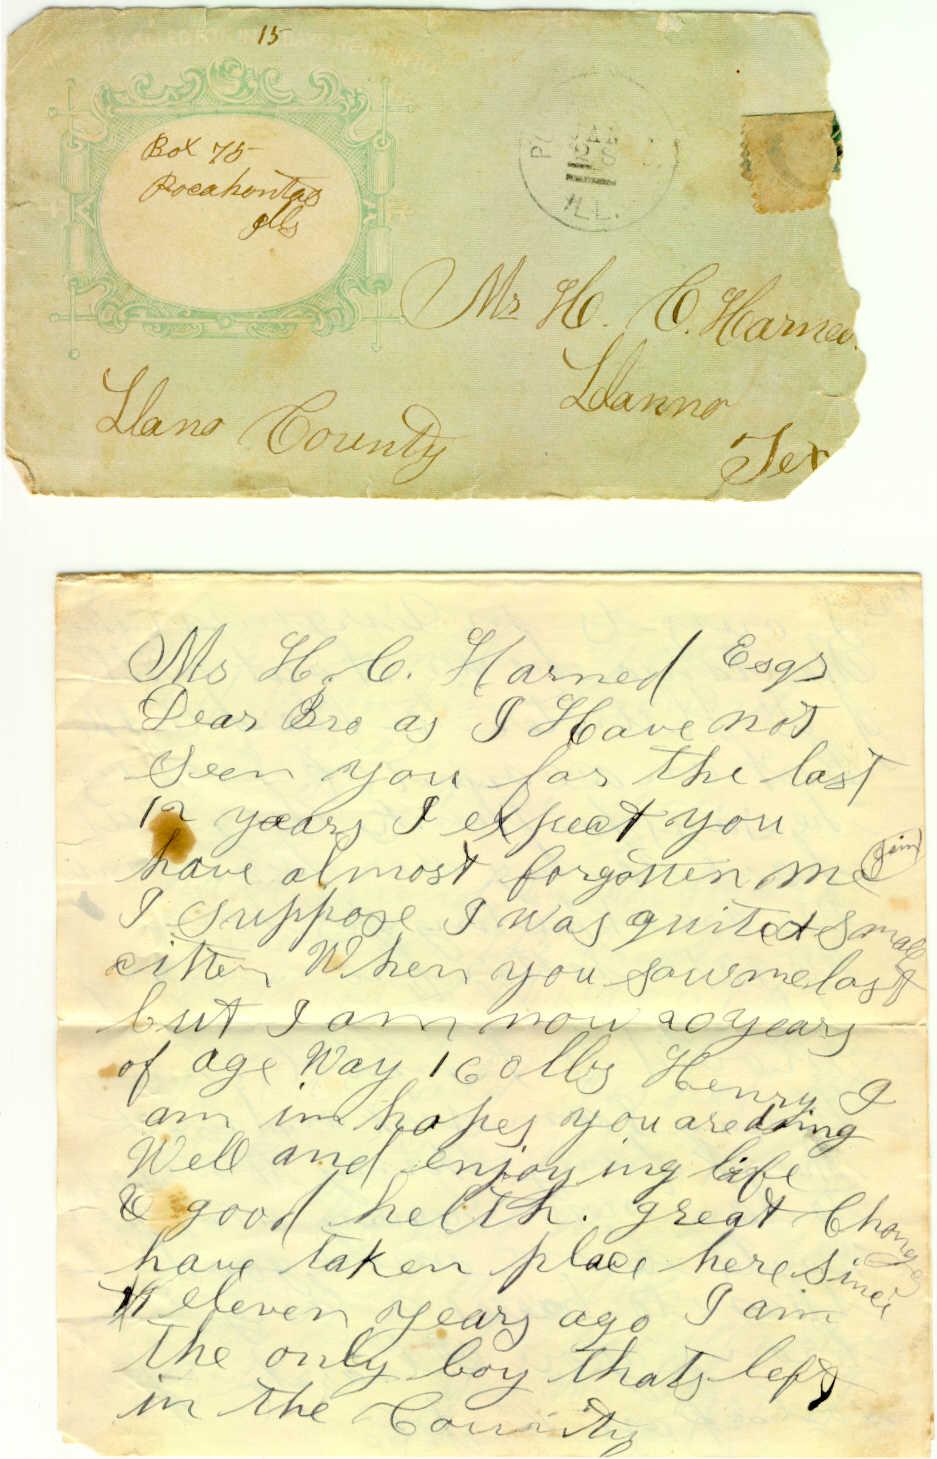 15
Box 75
Pocahontas
Ills
JAN
ILL.
Mr H. C. Harned
Llanno
Tex
Llano County
Mr H. C. Harned Esqr
Dear Bro as I Have not
Seen you for the last
12 years I expect you
have almost forgotten me (Jim)
I suppose I was quite a small
citten When you saw me last
but I am now 20 years
of age Way 160 lbs Henry I
am in hopes you are doing
Well and enjoying life
& good helth. great Changes
have taken place here Since
eleven years ago I am
the only boy thats left
in the County